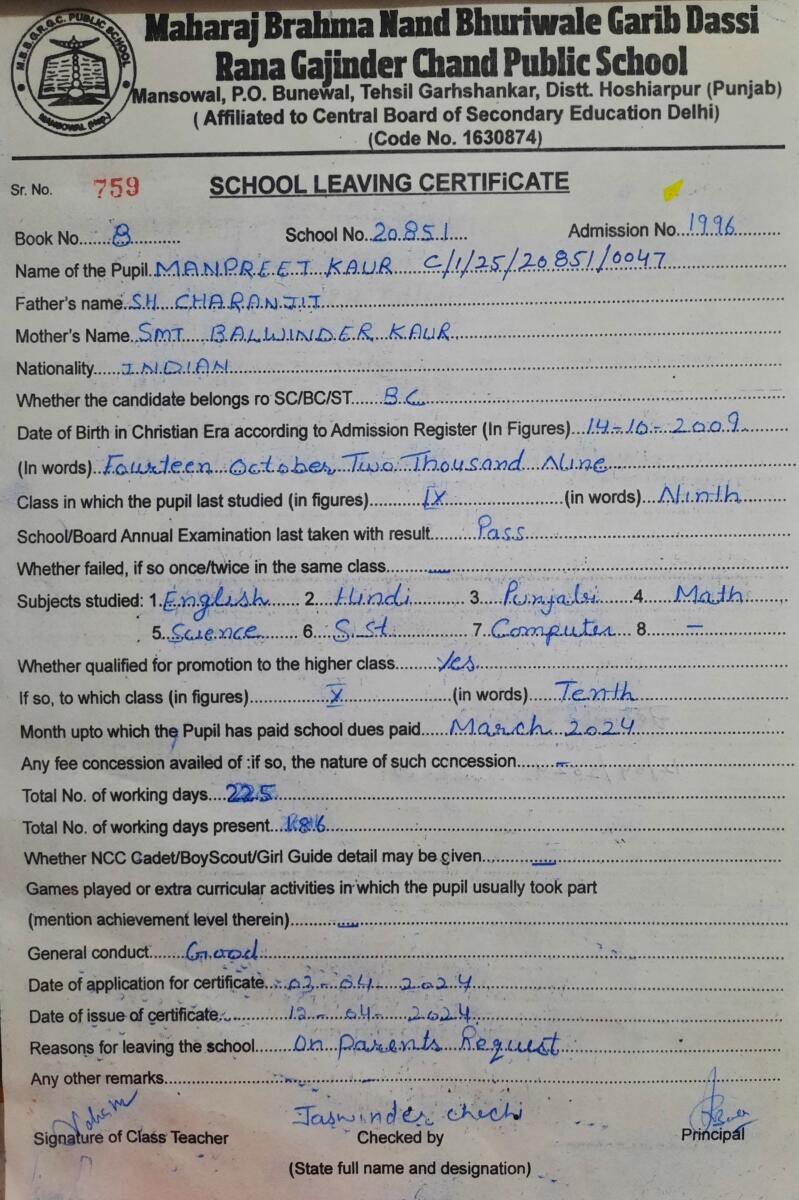 M.B.B.G.R.G.C. PUBLIC SCHOOL
MANSOWAL (Hsp.)
Maharaj Brahma Nand Bhuriwale Garib Dassi
Rana Gajinder Chand Public School
Mansowal, P.O. Bunewal, Tehsil Garhshankar, Distt. Hoshiarpur (Punjab)
( Affiliated to Central Board of Secondary Education Delhi)
(Code No. 1630874)
Sr. No. 759 SCHOOL LEAVING CERTIFICATE
Book No. 8 School No. 20851 Admission No. 1996
Name of the Pupil. MANPREET KAUR C/1/25/20851/0047
Father's name SH. CHARANJIT
Mother's Name SMT BALWINDER KAUR
Nationality INDIAN
Whether the candidate belongs ro SC/BC/ST B.C.
Date of Birth in Christian Era according to Admission Register (In Figures) 14-10-2009
(In words) Fourteen October Two Thousand Nine
Class in which the pupil last studied (in figures) IX (in words) Ninth
School/Board Annual Examination last taken with result Pass
Whether failed, if so once/twice in the same class —
Subjects studied: 1. English 2. Hindi 3 Punjabi 4 Math
5. Science 6 S.St 7 Computer 8 –
Whether qualified for promotion to the higher class Yes
If so, to which class (in figures) X (in words) Tenth
Month upto which the Pupil has paid school dues paid March 2024
Any fee concession availed of :if so, the nature of such concession –
Total No. of working days 225
Total No. of working days present 186
Whether NCC Cadet/BoyScout/Girl Guide detail may be given —
Games played or extra curricular activities in which the pupil usually took part
(mention achievement level therein) —
General conduct Good
Date of application for certificate 03-04-2024
Date of issue of certificate 12-04-2024
Reasons for leaving the school On parents Request
Any other remarks –
Jaswinder chechi
Signature of Class Teacher Checked by Principal
(State full name and designation)